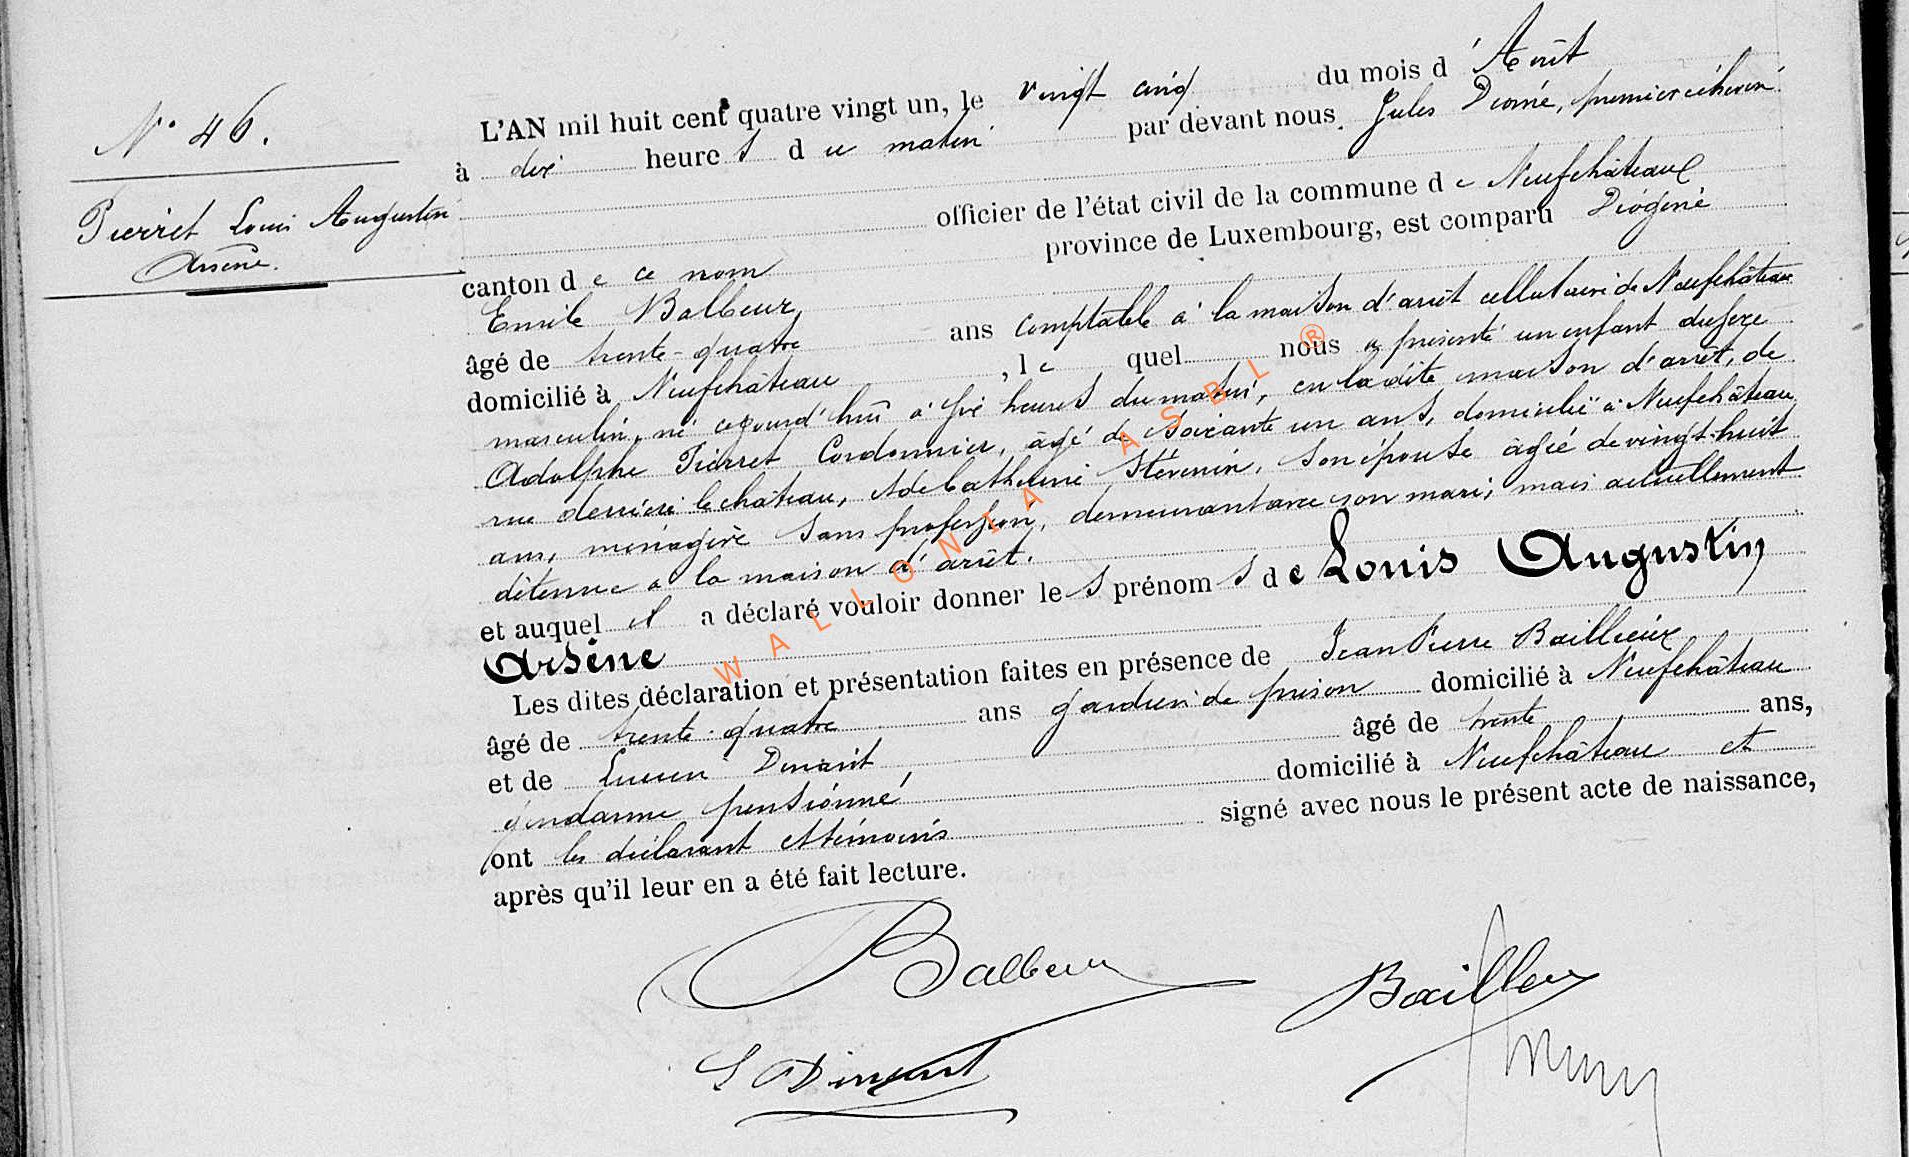 N° 46.
Pierret Louis Augustin
Arsène.
L'AN mil huit cent quatre vingt un, le vingt cinq du mois d'Août
à dix heures du matin par devant nous Jules Dioné, premier échevin
officier de l'état civil de la commune de Neufchâteau
canton de ce nom province de Luxembourg, est comparu Diogène
Emile Balbeur,
âgé de trente-quatre ans comptable à la maison d'arrêt cellulaire de Neufchâteau
domicilié à Neufchâteau, lequel nous a présenté un enfant du sexe
masculin, né cejourd'hui à six heures du matin, en la dite maison d'arrêt, de
Adolphe Pierret Cordonnier, âgé de soixante un ans, domicilié à Neufchâteau,
rue derrière le château, et de Catherine Stévenin, son épouse âgée de vingt-huit
ans, ménagère sans profession, demeurant avec son mari, mais actuellement
détenue à la maison d'arrêt.
et auquel il a déclaré vouloir donner les prénoms de Louis Augustin
Arsène
Les dites déclaration et présentation faites en présence de Jean Pierre Baillieux
âgé de trente-quatre ans gardien de prison domicilié à Neufchâteau
et de Lucien Dinant, âgé de trente ans,
gendarme pensionné, domicilié à Neufchâteau et
ont les déclarant et témoins signé avec nous le présent acte de naissance,
après qu'il leur en a été fait lecture.
Balbeur
Bailleux
L Dinant
WALLONIA ASBL ®